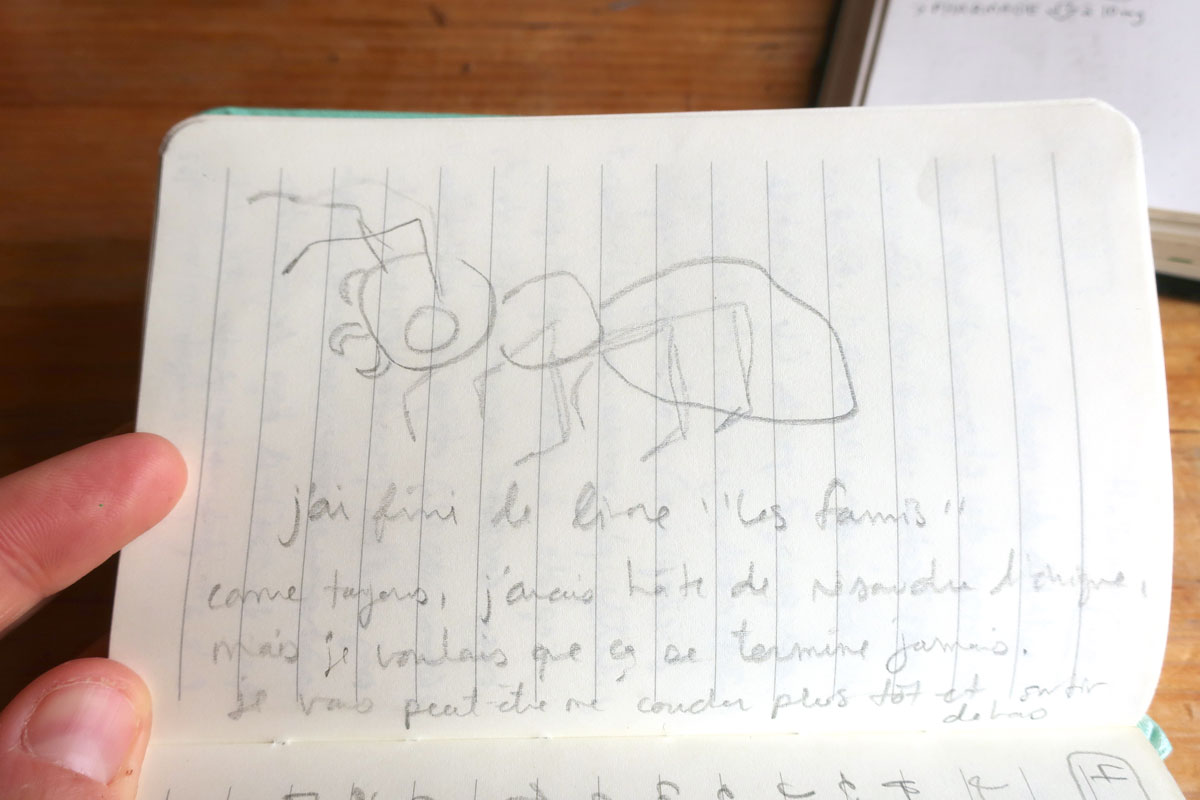 PHARMACIE à 10mg
j'ai fini de lire "les famis"
come toujours, j'avais hâte de résoudre l'énigme,
mais je voulais que ça se termine jamais.
je vais peut-être me coucher plus tôt et sortir
dehors